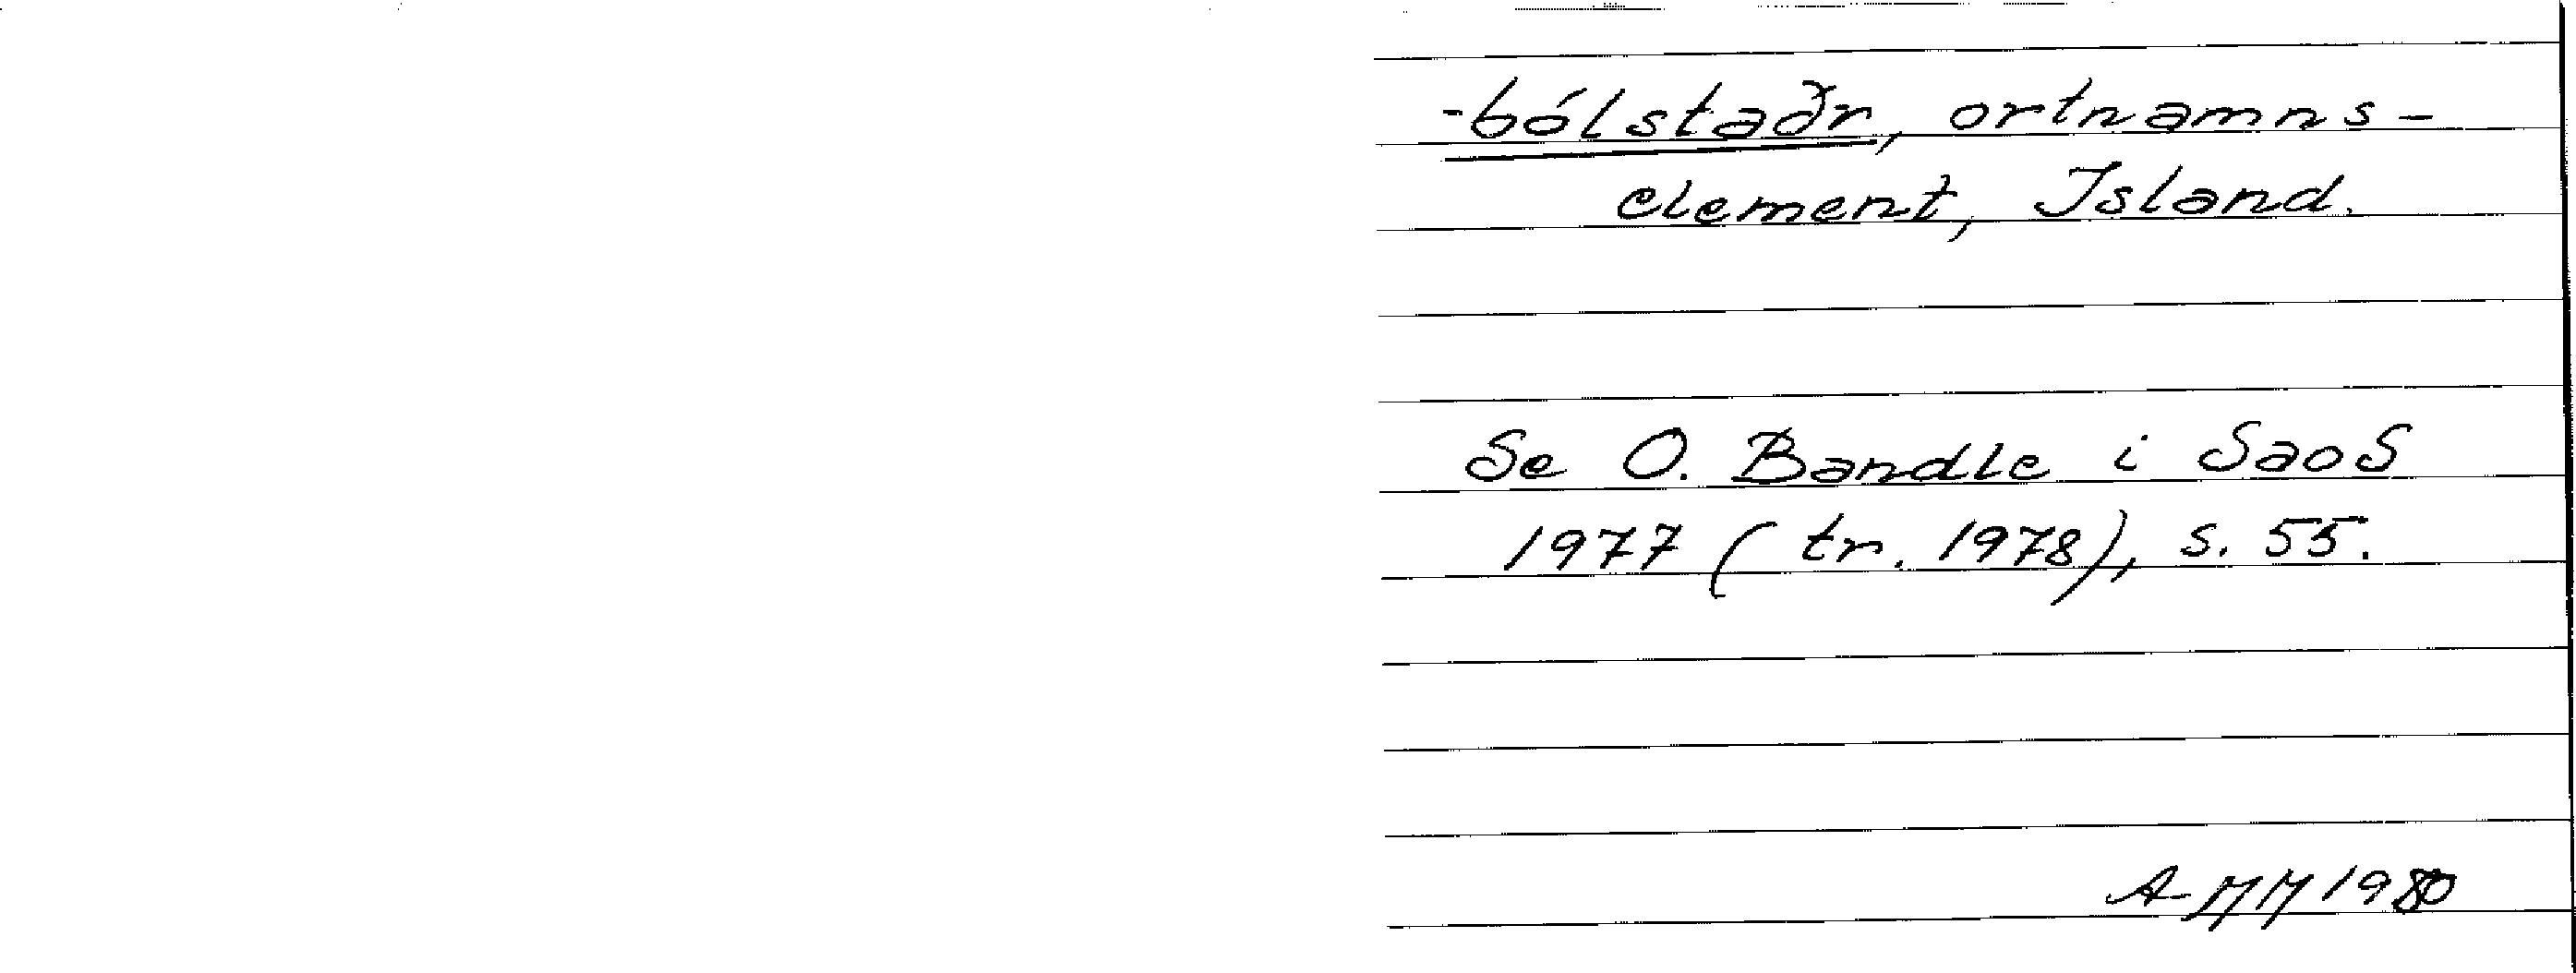 -bólstaðr, ortnamns-
element, Island.
Se O. Bandle i SaoS
1977 (tr. 1978), s. 55.
A-MM 1980